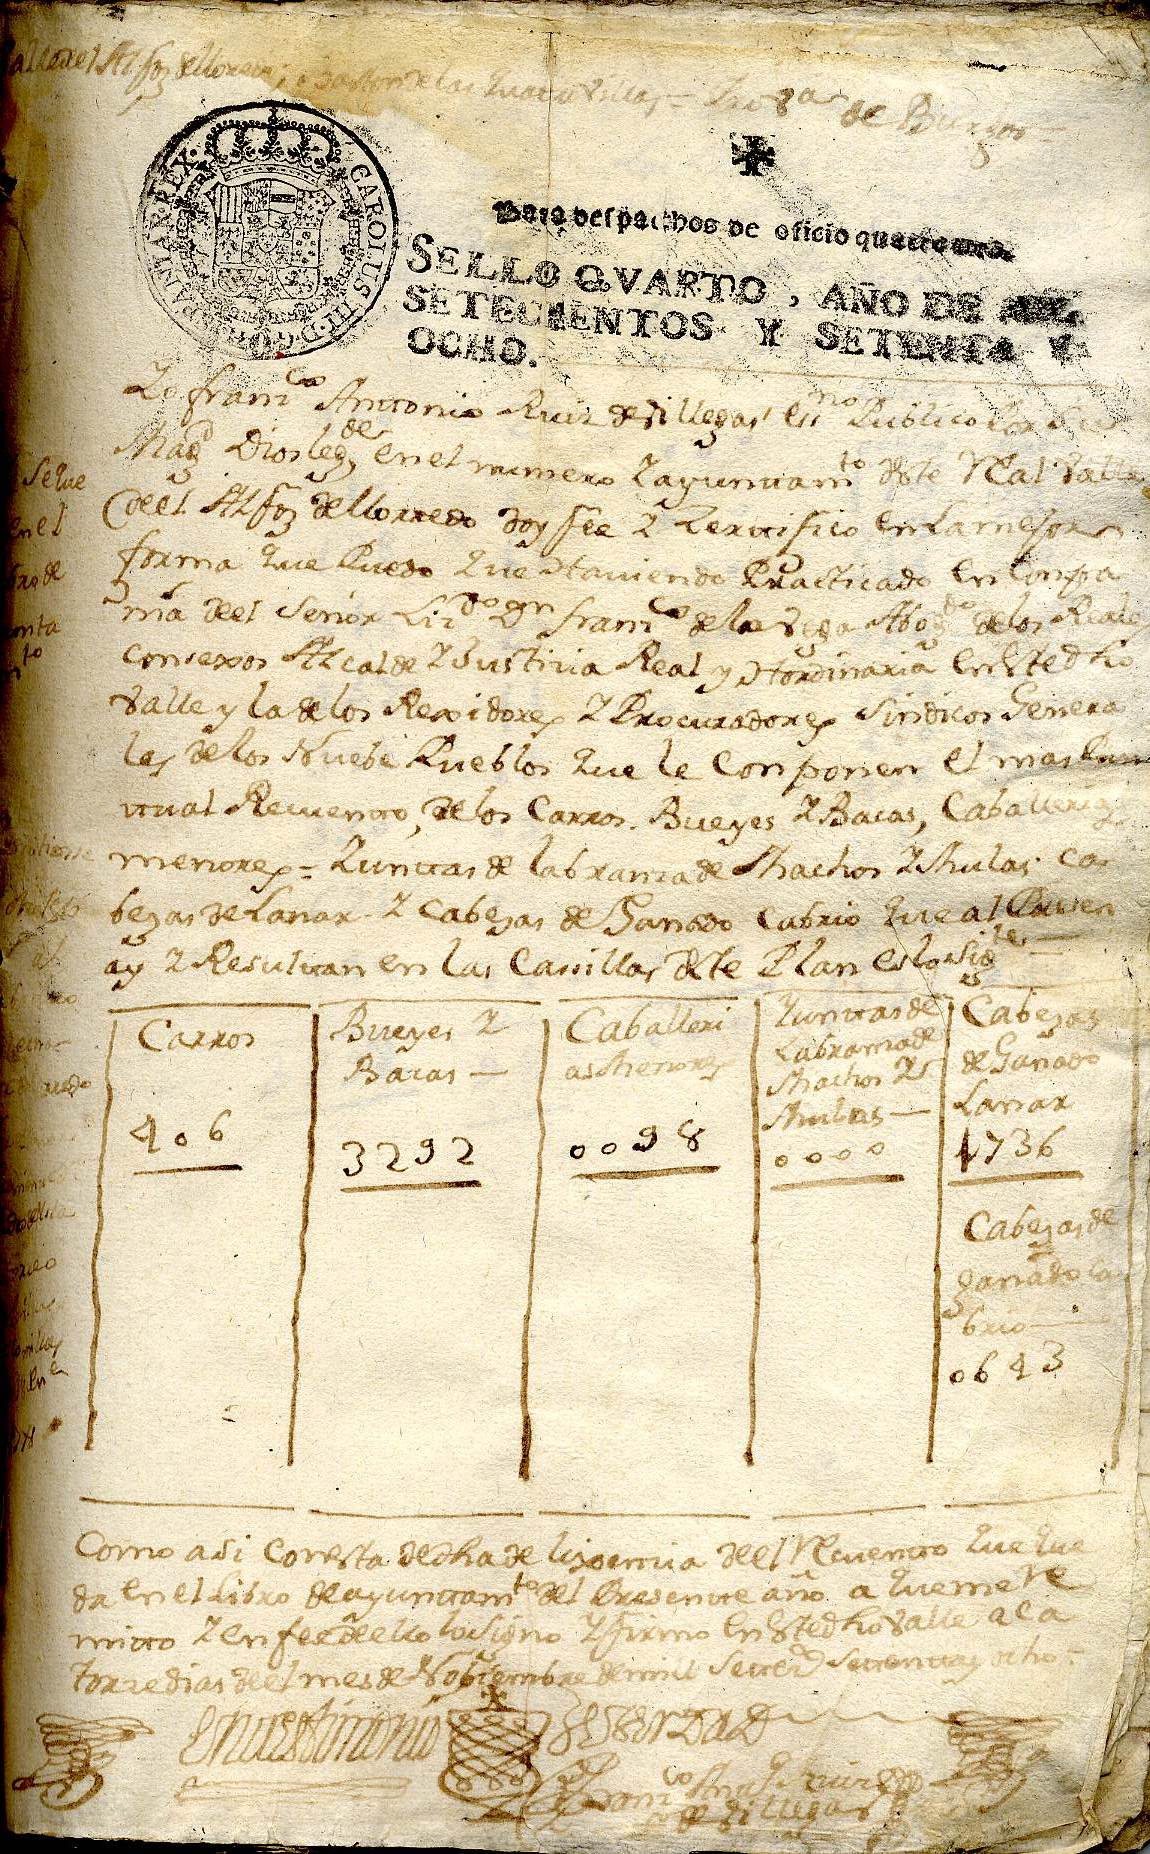 de Burgos
CAROLUS III D G HISPANIAR REX
Para despachos de oficio quatro mrs.
SELLO QVARTO, AÑO DE MIL
SETECIENTOS Y SETENTA Y
OCHO.
Yo Franco Anttonio Ruiz de Villegas esno Publico por su
Magd Dios lege en el numero y ayunttamto deste Real valle
de el Alfoz de lloredo doy fee y zerttifico en la mejor
forma que Puedo que Haviendo Practticado en Conpa
nia del Señor Lizdo Dn Franco de la Vega Abogdo de los Reales
consexos Alcalde y Justizia Real y Hordinaria en Este dho
Valle y la de los Rexidores y Procuradores Sindicos Genera
les de los Nuebe Pueblos que le Conponen el mas Pun
ttual Recuentto, de los Carros. Bueyes y Bacas, Caballerias
menores = Yunttas de labranza de Machos y Mulas. Ca
bezas de Lanar y Cabezas de Ganado Cabrio que al Presen
ay y Resulttan en las Casillas deste Plan es lo Sigte
Carros
406
Bueyes y
Bacas
3292
Caballeri
as Menores
0098
Yunttas de
Labranza de
Machos y
Mulas
0000
Cabezas
de Ganado
Lanar
1736
Cabezas de
ganado ca
brio
0643
Como asi Consta de dha deligenzia del Recuentto que que
da en el Libro de ayunttamto del Presentte año a que me Re
mitto y en fee de ello lo Signo y firmo en Este dho Valle a ca
torze dias de el mes de Nobiembre de mill Settezs Settentta y ocho =
En testimonio de Verdad
Franco Antto Ruiz
de Villegas
Se que
en el